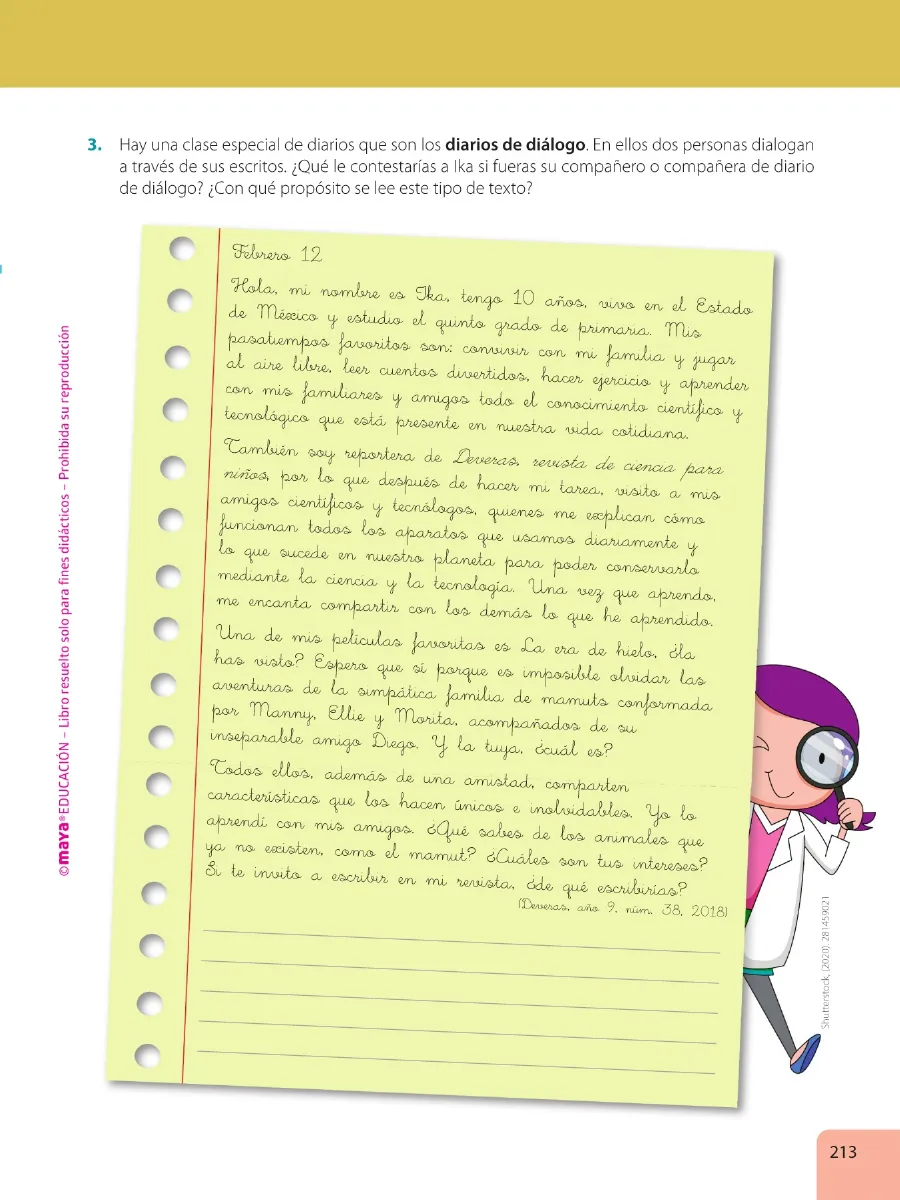 3. Hay una clase especial de diarios que son los diarios de diálogo. En ellos dos personas dialogan
a través de sus escritos. ¿Qué le contestarías a Ika si fueras su compañero o compañera de diario
de diálogo? ¿Con qué propósito se lee este tipo de texto?
Febrero 12
Hola, mi nombre es Ika, tengo 10 años, vivo en el Estado
de México y estudio el quinto grado de primaria. Mis
pasatiempos favoritos son: convivir con mi familia y jugar
al aire libre, leer cuentos divertidos, hacer ejercicio y aprender
con mis familiares y amigos todo el conocimiento científico y
tecnológico que está presente en nuestra vida cotidiana.
También soy reportera de Deveras, revista de ciencia para
niños, por lo que después de hacer mi tarea, visito a mis
amigos científicos y tecnólogos, quienes me explican cómo
funcionan todos los aparatos que usamos diariamente y
lo que sucede en nuestro planeta para poder conservarlo
mediante la ciencia y la tecnología. Una vez que aprendo,
me encanta compartir con los demás lo que he aprendido.
Una de mis películas favoritas es La era de hielo, ¿la
has visto? Espero que sí porque es imposible olvidar las
aventuras de la simpática familia de mamuts conformada
por Manny, Ellie y Morita, acompañados de su
inseparable amigo Diego. Y la tuya, ¿cuál es?
Todos ellos, además de una amistad, comparten
características que los hacen únicos e inolvidables. Yo lo
aprendí con mis amigos. ¿Qué sabes de los animales que
ya no existen, como el mamut? ¿Cuáles son tus intereses?
Si te invito a escribir en mi revista, ¿de qué escribirías?
(Deveras, año 9, núm. 38, 2018)
©maya®EDUCACIÓN – Libro resuelto solo para fines didácticos – Prohibida su reproducción
Shutterstock, (2020). 281459021
213